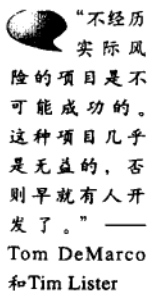 “不经历
实际风
险的项目是不
可能成功的。
这种项目几乎
是无益的，否
则早就有人开
发了。”——
Tom DeMarco
和Tim Lister